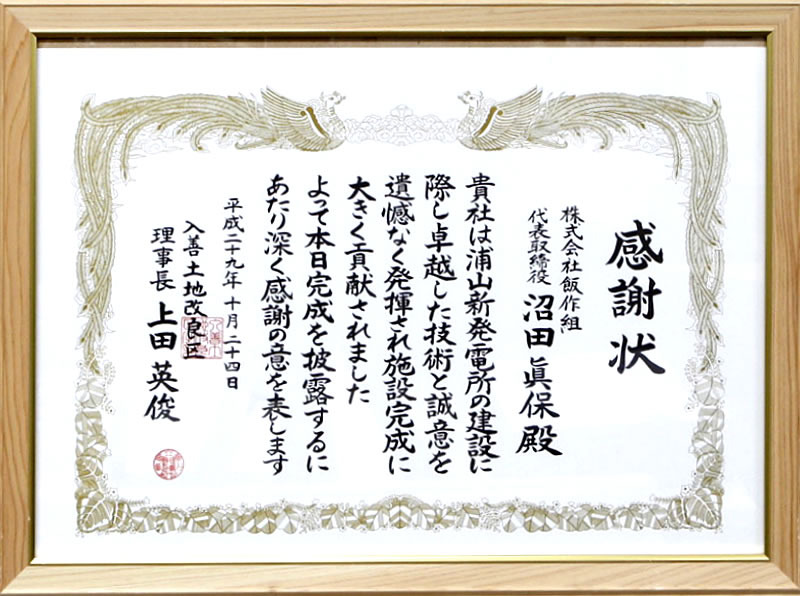 感謝状
株式会社飯作組
代表取締役 沼田眞保殿
貴社は浦山新発電所の建設に
際し卓越した技術と誠意を
遺憾なく発揮され施設完成に
大きく貢献されました
よって本日完成を披露するに
あたり深く感謝の意を表します
平成二十九年十月二十四日
入善土地改良区
理事長 上田英俊